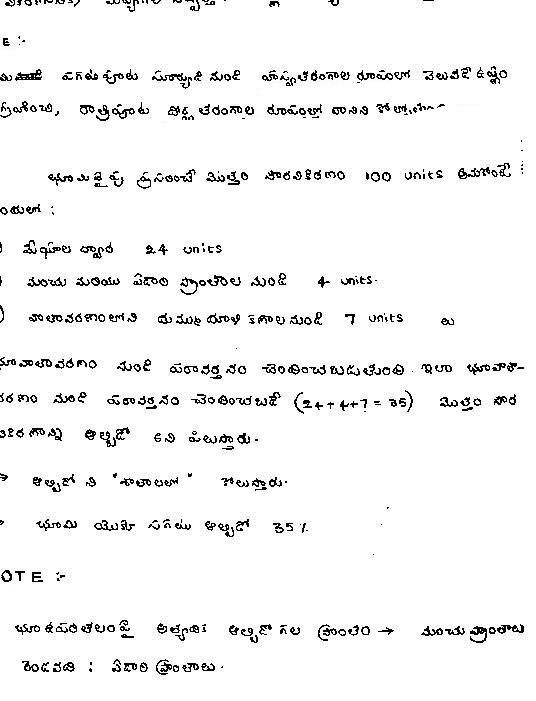 E :-
పగటి పూట సూర్యుడి నుండి హ్రస్వతరంగాల రూపంలో వెలువడే ఉష్ణం
గ్రహించి, రాత్రిపూట దీర్ఘ తరంగాల రూపంలో దానిని కోల్పోతుం
భూమి వైపు ప్రసరించే మొత్తం సౌరవికిరణం 100 units అనుకుంటే
మేఘాల ద్వారా 24 units
మంచు మరియు ఏడారి ప్రాంతాల నుండి 4 units.
వాతావరణంలోని దుమ్ము ధూళి కణాల నుండి 7 units లు
భూవాతావరణం నుండి పరావర్తనం చెందించబడుతుంది. ఇలా భూవాతా-
వరణం నుండి పరావర్తనం చెందించబడే (24+4+7=35) మొత్తం సౌర
వికిరణాన్ని ఆల్బిడో అని పిలుస్తారు.
→ ఆల్బిడో ని "శాతాలలో" కోలుస్తారు.
భూమి యొక్క సగటు ఆల్బిడో 35%
OTE :-
భూ ఉపరితలంపై అత్యధిక ఆల్బిడో గల ప్రాంతం → మంచు ప్రాంతాలు
రెండవది : ఏడారి ప్రాంతాలు.